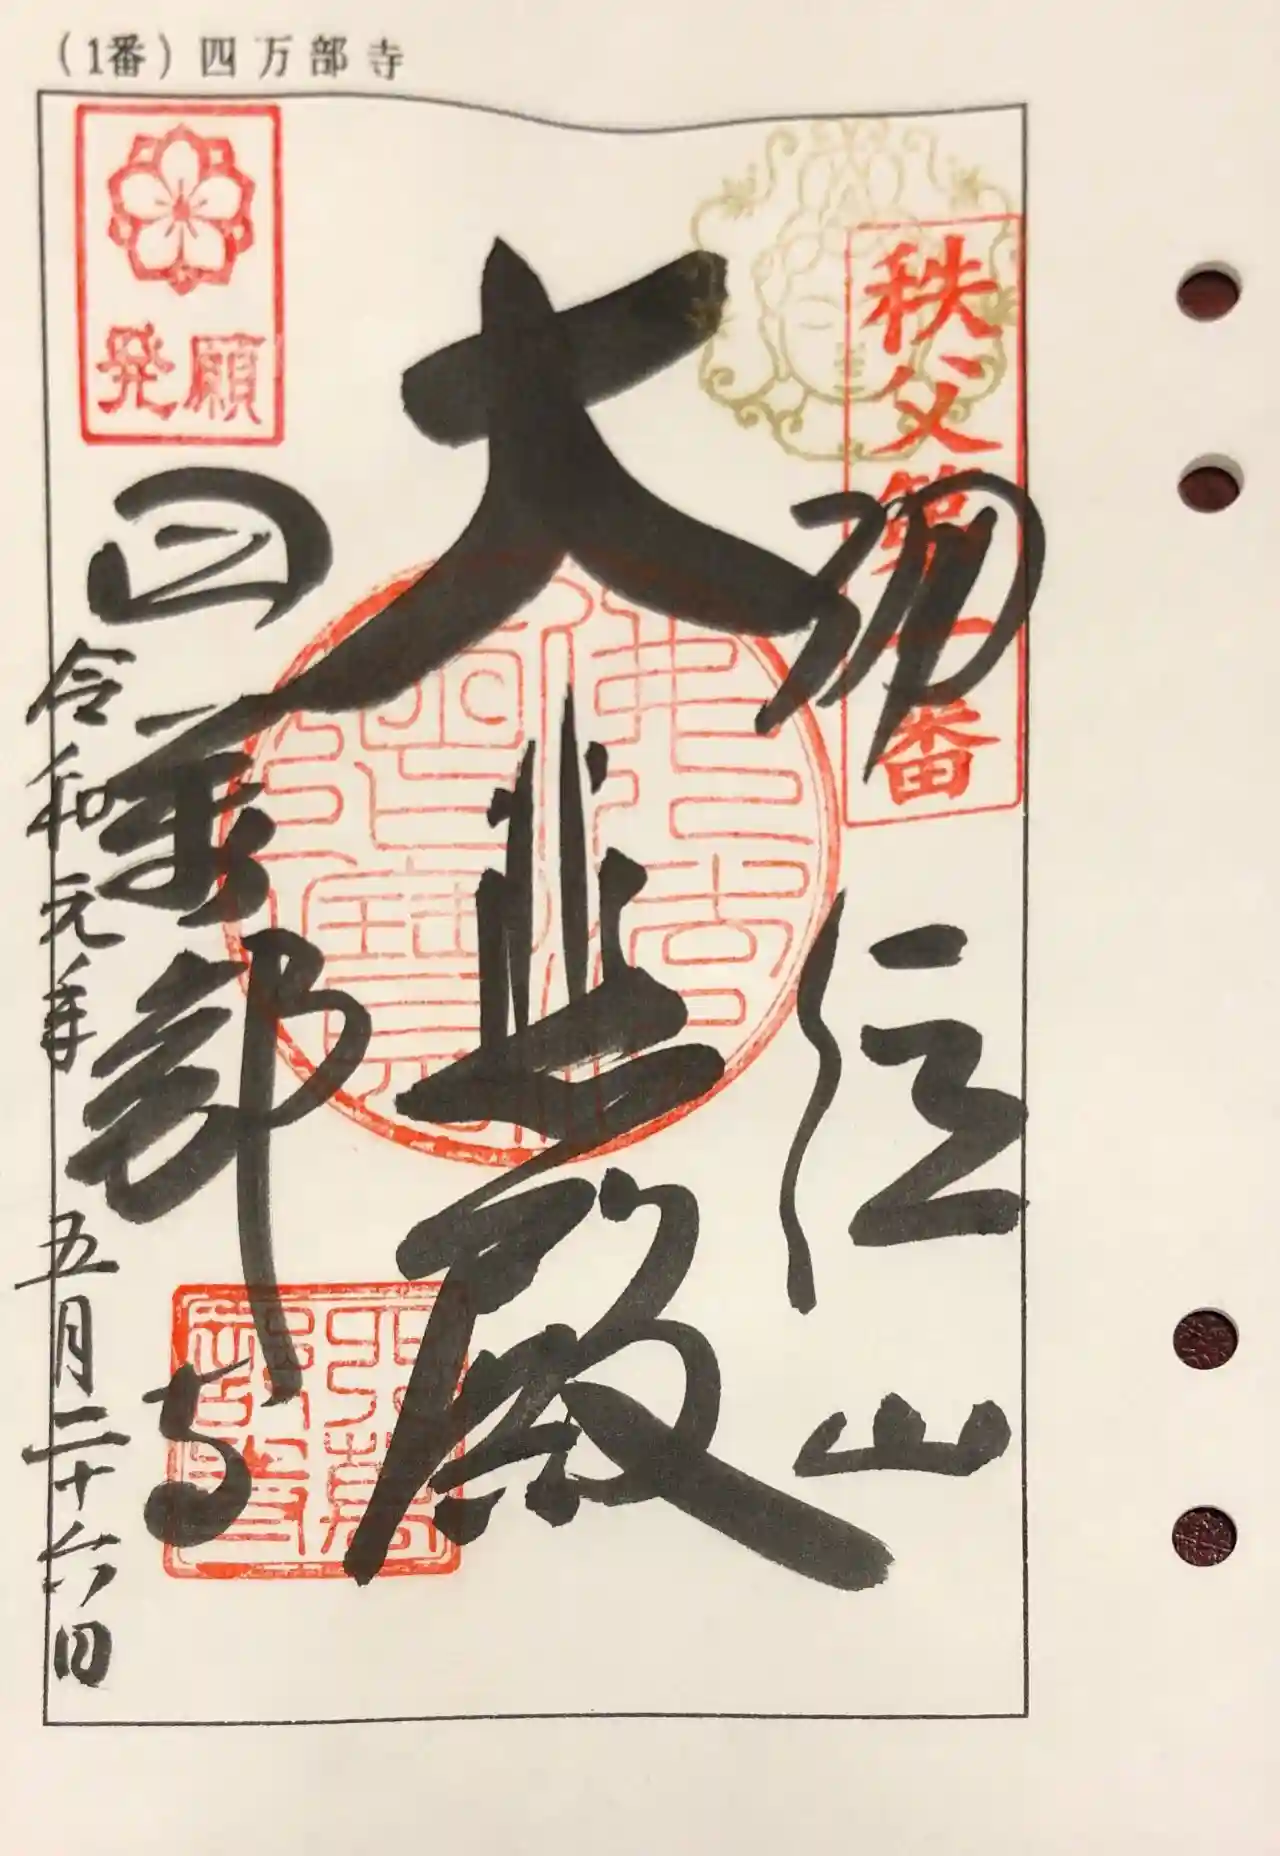 （1番）四万部寺
秩父第一番
発願
大悲殿
山
四萬部寺
令和元年五月二十六日